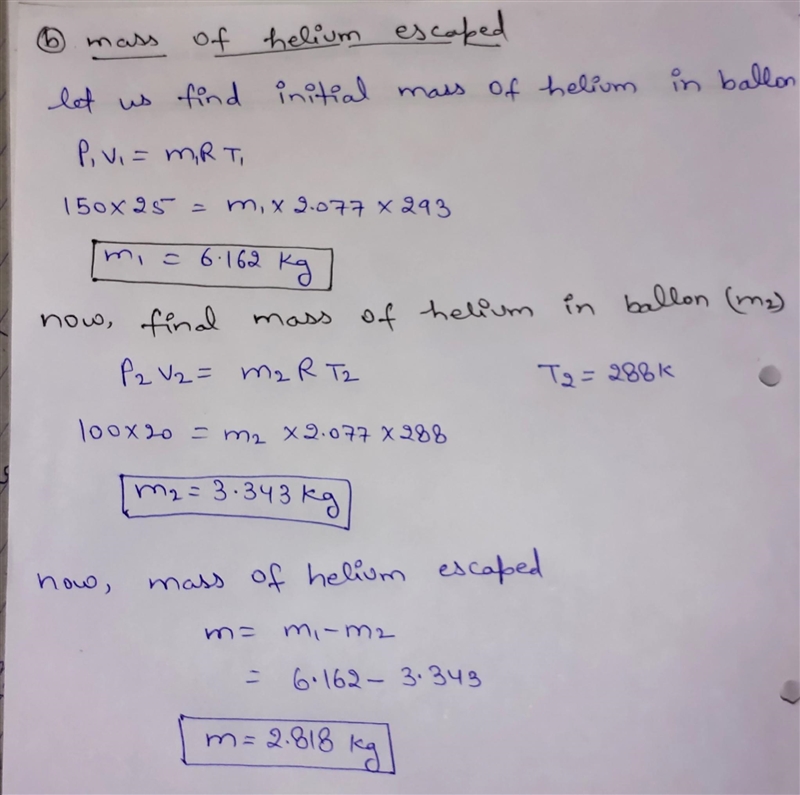 ⓑ mass of helium escaped
let us find initial mass of helium in ballon
P₁V₁ = m₁RT₁
150×25 = m₁ × 2.077 × 293
m₁ = 6.162 kg
now, final mass of helium in ballon (m₂)
P₂V₂ = m₂RT₂ T₂ = 288K
100×20 = m₂ × 2.077 × 288
m₂ = 3.343 kg
now, mass of helium escaped
m = m₁ - m₂
= 6.162 - 3.343
m = 2.818 kg